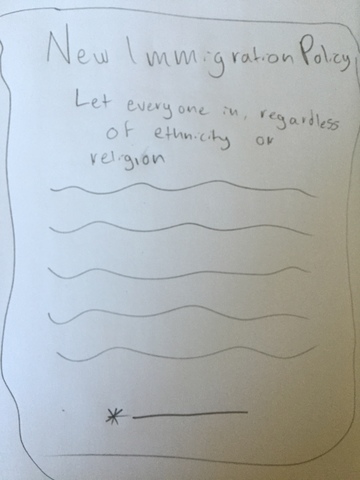 New Immigration Policy
Let everyone in, regardless
of ethnicity or
religion